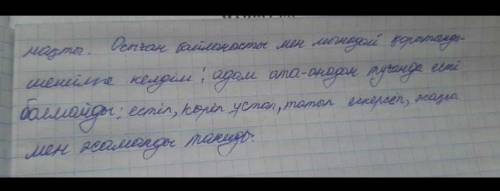 нақты. Осыған байланысты мен мынадай қорытынды-
шешімге келдім: адам ата-анадан туғанда есті
болмайды: естіп, көріп, ұстап, татып ескерсеп, жақсы
мен жаманды таниды.